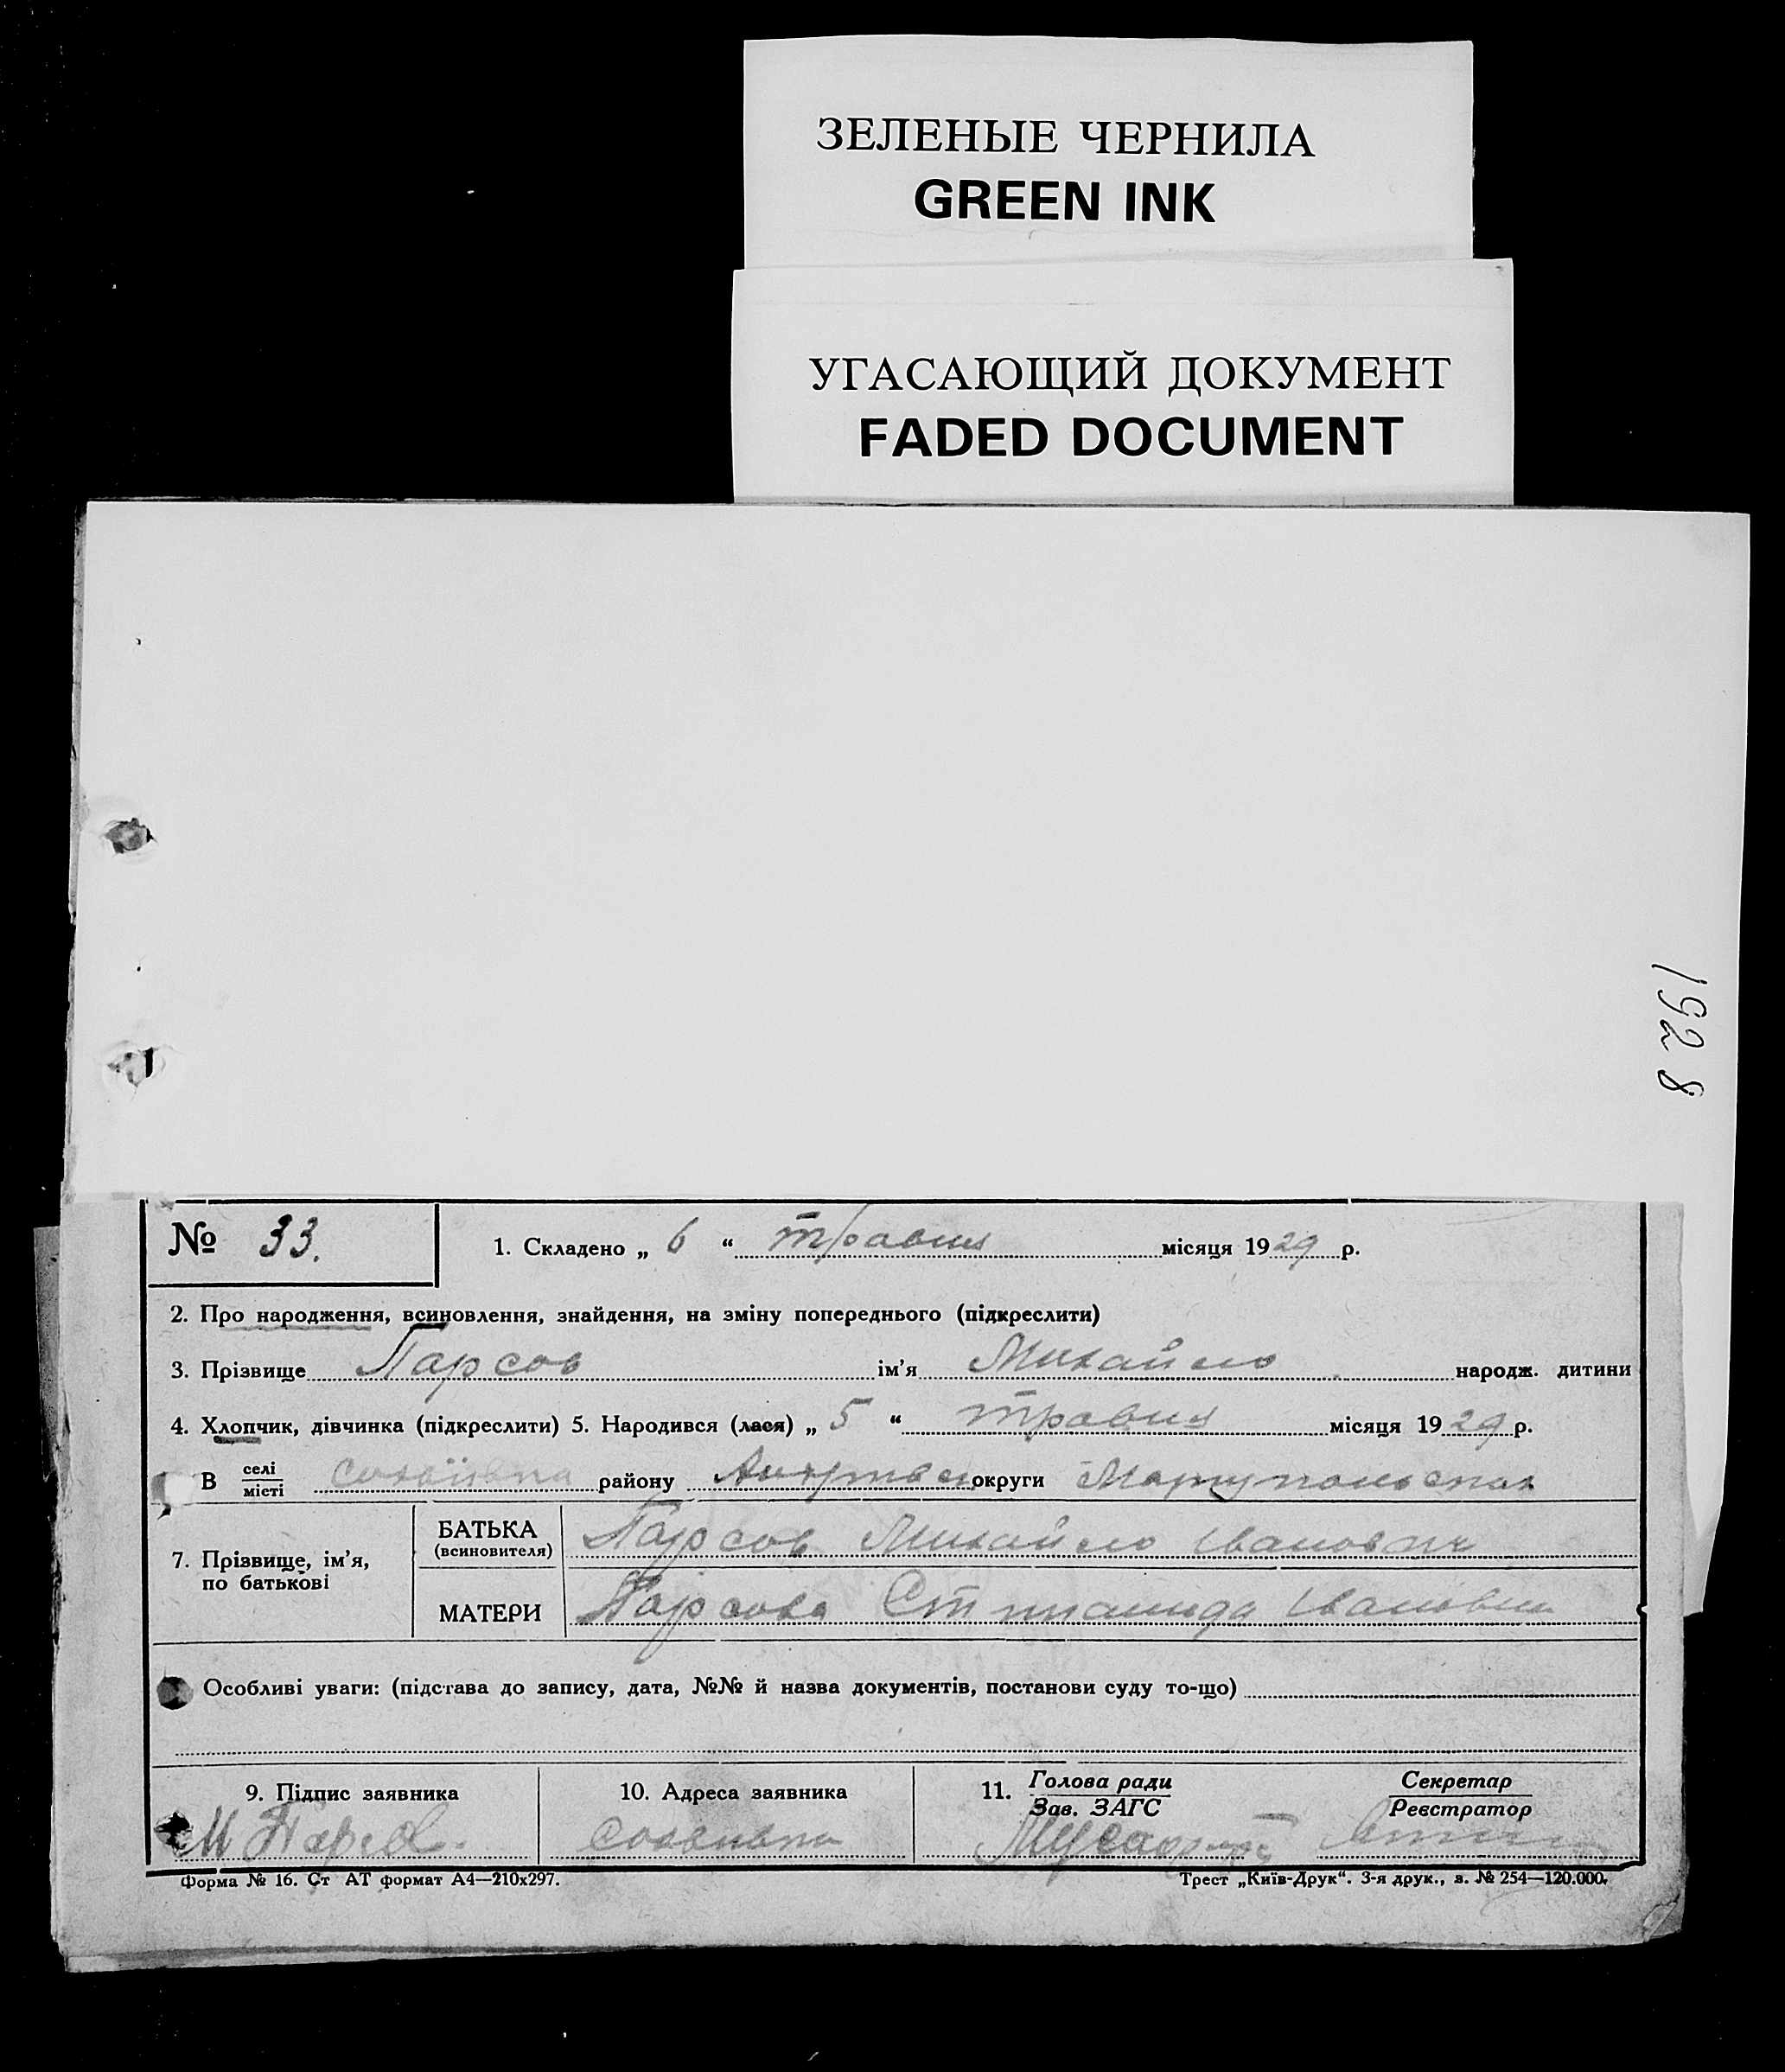 ЗЕЛЕНЫЕ ЧЕРНИЛА
GREEN INK
УГАСАЮЩИЙ ДОКУМЕНТ
FADED DOCUMENT
1928
№ 33.
1. Складено „ 6 “ травня місяця 1929 р.
2. Про народження, всиновлення, знайдення, на зміну попереднього (підкреслити)
3. Прізвище Парсов ім'я Михайло народж. дитини
4. Хлопчик, дівчинка (підкреслити) 5. Народився (лася) „ 5 “ травня місяця 1929 р.
В селі місті району округи
7. Прізвище, ім'я, по батькові
БАТЬКА (всиновителя) Парсов Михайло Іванович
МАТЕРИ Парсова Івановна
Особливі уваги: (підстава до запису, дата, №№ й назва документів, постанови суду то-що)
9. Підпис заявника
10. Адреса заявника
11. Голова ради Зав. ЗАГС
Секретар Реєстратор
М
Форма № 16. Ст АТ формат А4—210х297.
Трест „Київ-Друк“. 3-я друк., з. № 254—120.000.